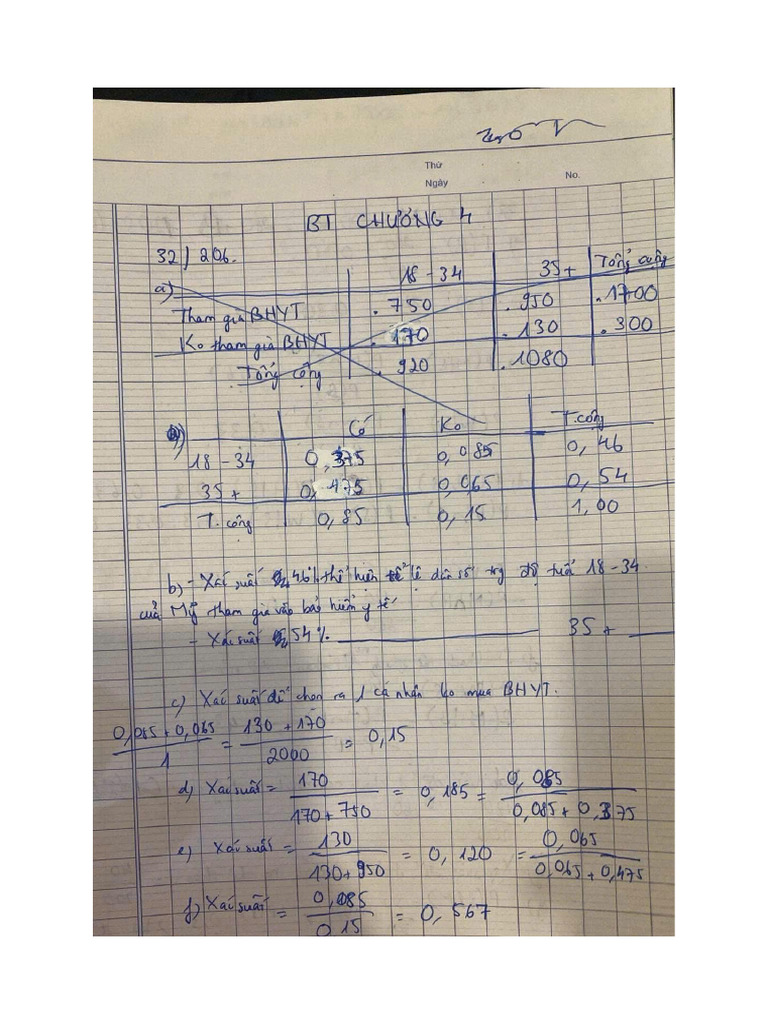 Thứ
Ngày No.
BT CHƯƠNG 4
32) 206.
a) 18 - 34 35+ Tổng cộng
Tham gia BHYT .750 .950 .1700
Ko tham gia BHYT .170 .130 .300
Tổng cộng .920 .1080
a) Có Ko T. cộng
18 - 34 0,375 0,085 0,46
35+ 0,475 0,065 0,54
T. cộng 0,85 0,15 1,00
b) - Xác suất 46% thể hiện tỉ lệ dân số trg độ tuổi 18 - 34
của Mỹ tham gia vào bảo hiểm y tế
- Xác suất 54% 35+
c) Xác suất để chọn ra 1 cá nhân ko mua BHYT.
0,085 + 0,065 / 1 = 130 + 170 / 2000 = 0,15
d) Xác suất = 170 / 170 + 750 = 0,185 = 0,085 / 0,085 + 0,375
e) Xác suất = 130 / 130 + 950 = 0,120 = 0,065 / 0,065 + 0,475
f) Xác suất = 0,085 / 0,15 = 0,567